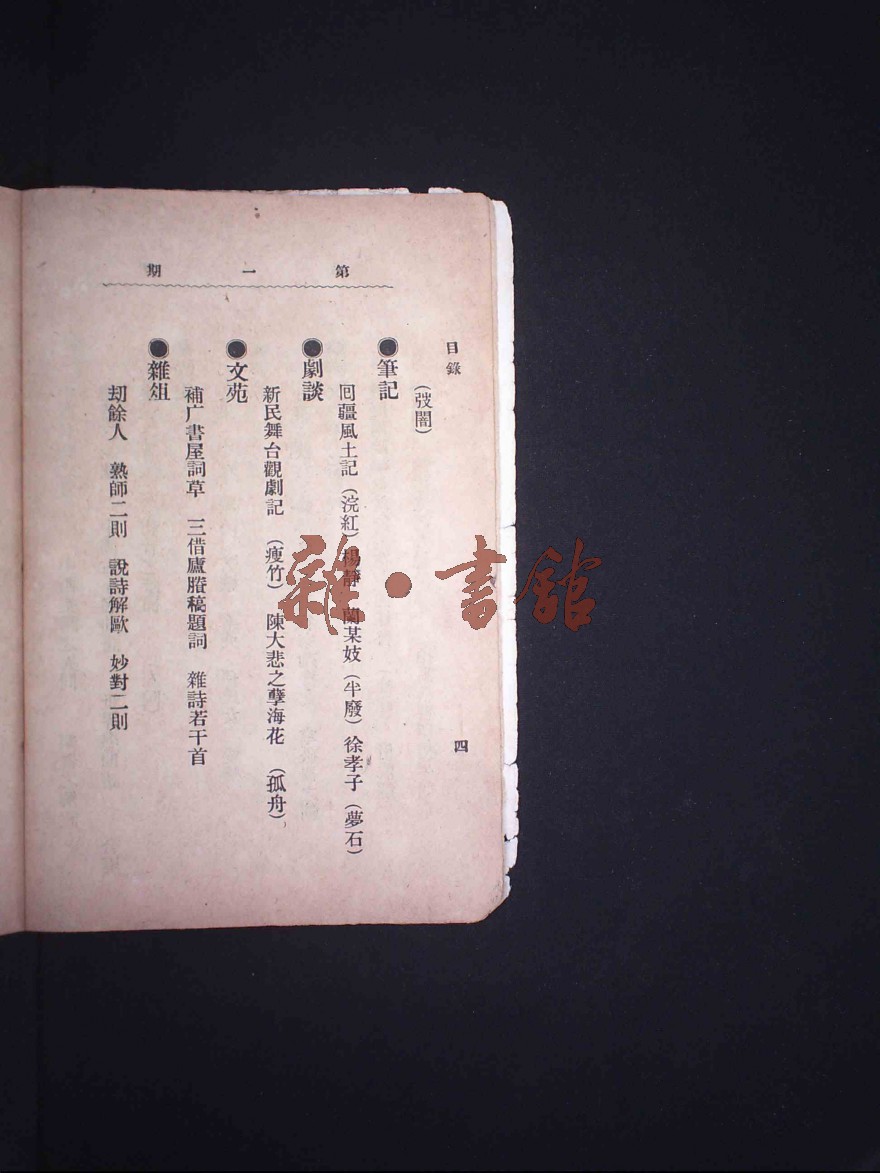 第一期
目錄
四
(弢闇)
●筆記
囘疆風土記 (浣紅) 楊靜 閩某妓 (半廢) 徐孝子 (夢石)
●劇談
新民舞台觀劇記 (瘦竹) 陳大悲之孽海花 (孤舟)
●文苑
補广書屋詞草 三借廬賸稿題詞 雜詩若干首
●雜俎
刧餘人 熟師二則 說詩解歐 妙對二則
雜·書館